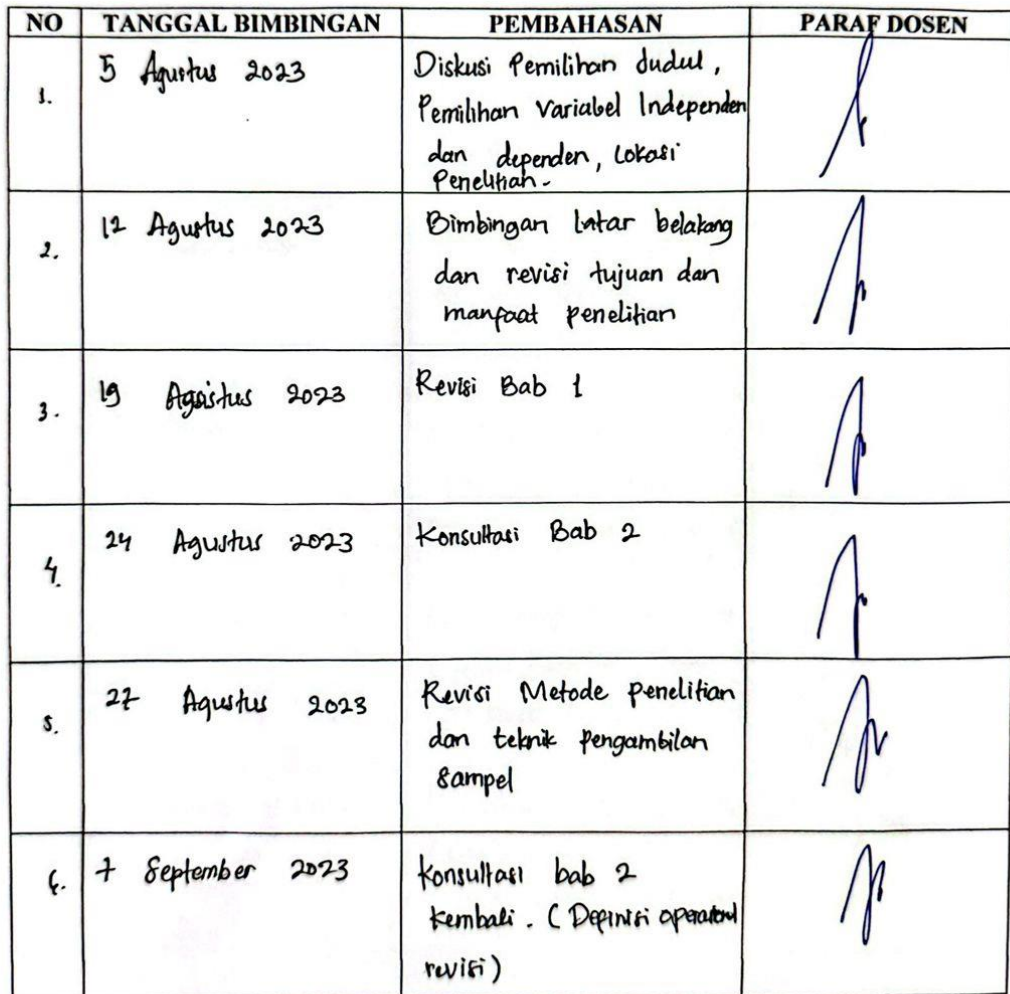 NO TANGGAL BIMBINGAN PEMBAHASAN PARAF DOSEN
1. 5 Agustus 2023 Diskusi Pemilihan dudul,
Pemilihan Variabel Independen
dan dependen, Lokasi
Penelitian.
2. 12 Agustus 2023 Bimbingan latar belakang
dan revisi tujuan dan
manfaat penelitian
3. 19 Agustus 2023 Revisi Bab 1
4. 24 Agustus 2023 Konsultasi Bab 2
5. 27 Agustus 2023 Revisi Metode penelitian
dan teknik pengambilan
Sampel
6. 7 September 2023 Konsultasi bab 2
kembali. (Definisi operasional
revisi)